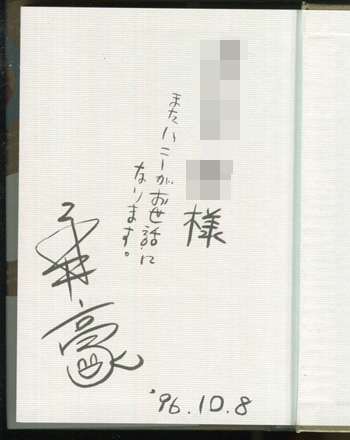 様
またハニーがお世話に
なります。
永井豪
'96.10.8